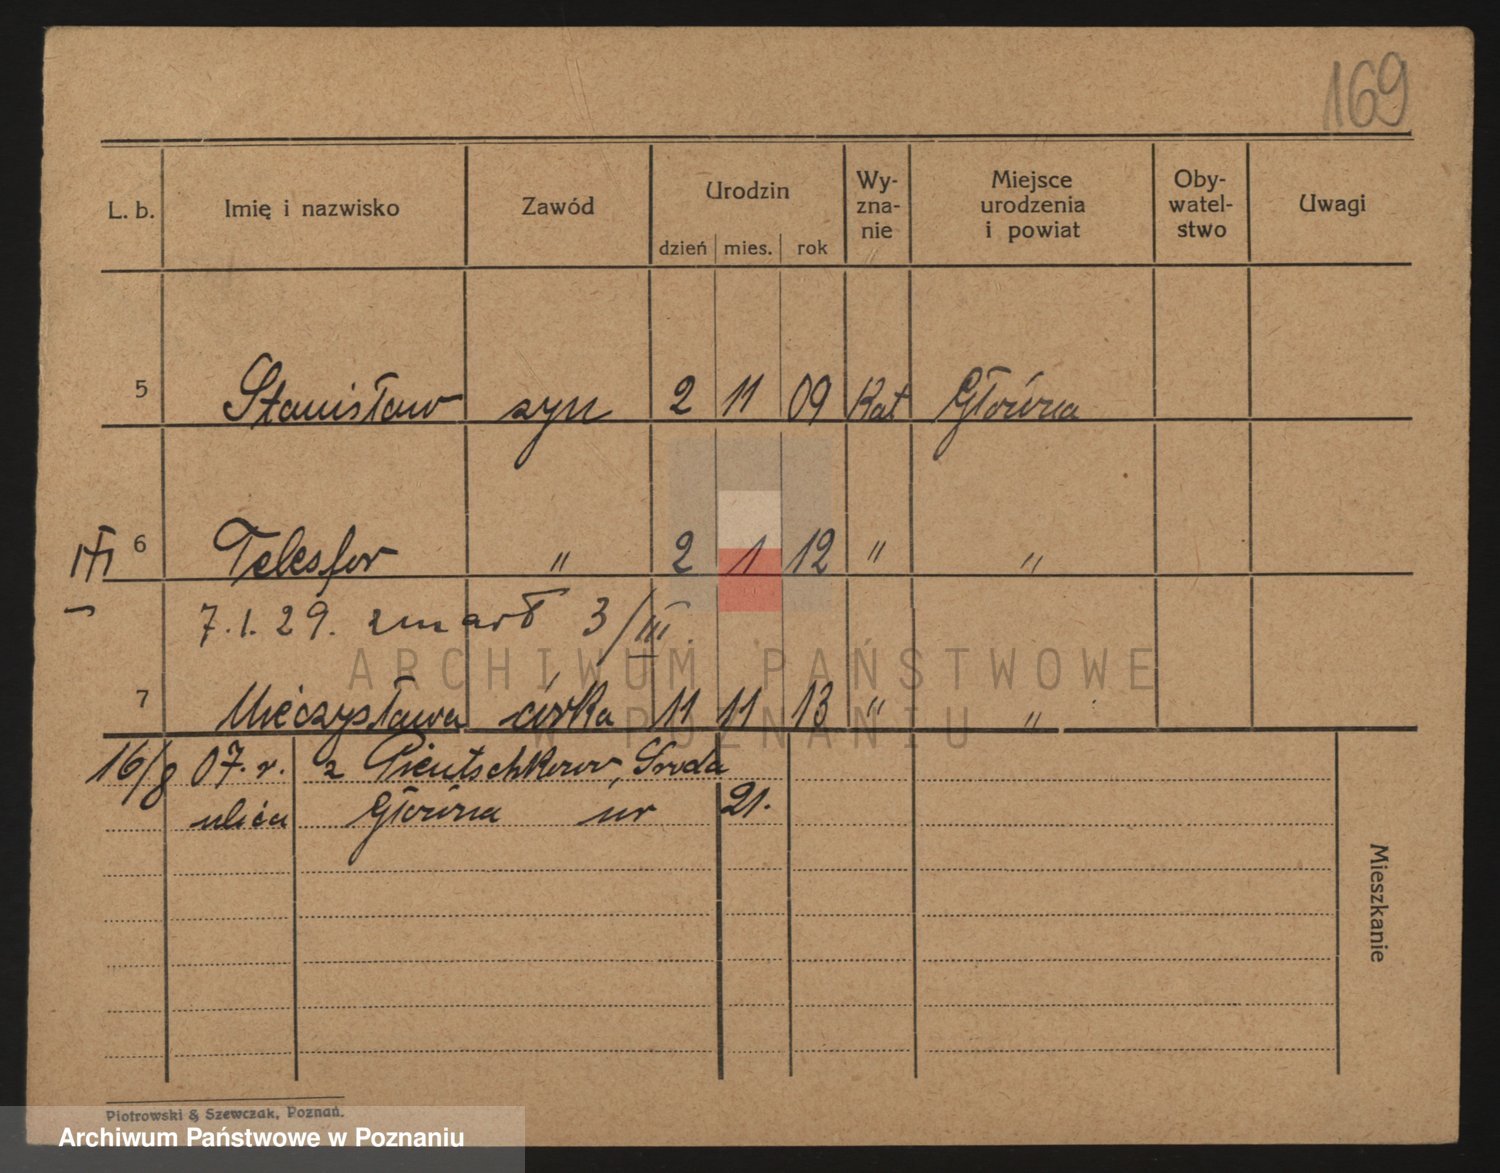 169
L. b. Imię i nazwisko Zawód Urodzin dzień mies. rok Wy-zna-nie Miejsce urodzenia i powiat Oby-watel-stwo Uwagi
5 Stanisław syn 2 11 09 Kat Główna
6 Telesfor " 2 1 12 " "
7.1.29. zmarł 3/III.
7 Mieczysława córka 11 11 13 " "
16/8 07. r. z Pientschkowo, Sroda
ulica Główna nr 21.
Mieszkanie
Piotrowski & Szewczak, Poznań.
ARCHIWUM PAŃSTWOWE
W POZNANIU
Archiwum Państwowe w Poznaniu